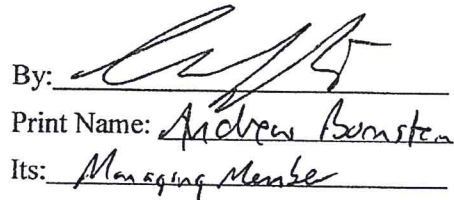 By:
Print Name: Andrew Bornstein
Its: Managing Member